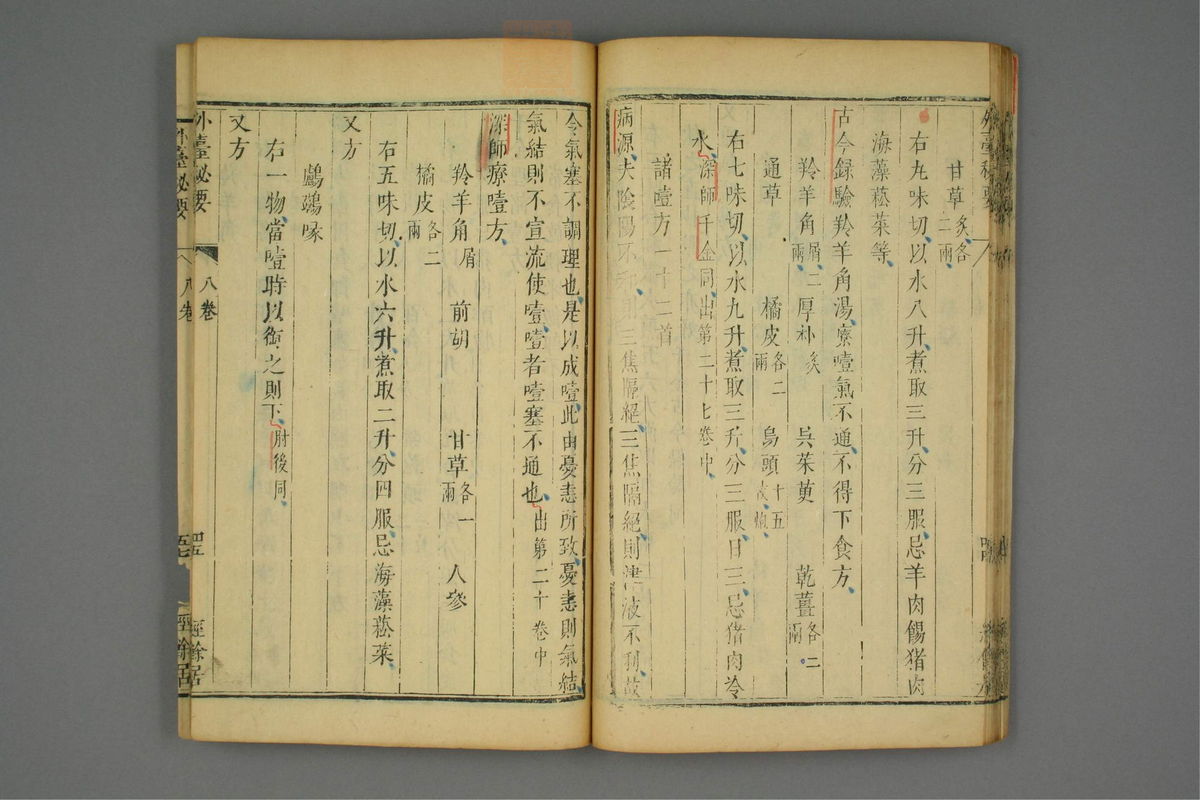 甘草炙各二兩
右九味切以水八升煮取三升分三服忌羊肉餳猪肉
海藻菘菜等
古今録驗羚羊角湯療噎氣不通不得下食方
羚羊角屑二兩 厚朴炙 吳茱萸 乾薑各二兩
通草 橘皮各二兩 烏頭十五枚炮
右七味切以水九升煮取三升分三服日三忌猪肉冷
水深師千金同出第二十七卷中
諸噎方一十二首
病源夫陰陽不和則三焦隔絕三焦隔絕則津液不利故
令氣塞不調理也是以成噎此由憂恚所致憂恚則氣結
氣結則不宣流使噎噎者噎塞不通也出第二十卷中
深師療噎方
羚羊角屑 前胡 甘草各一兩 人參
橘皮各二兩
右五味切以水六升煮取二升分四服忌海藻菘菜
又方
鸕鷀喙
右一物當噎時以銜之則下肘後同
又方
外臺祕要 八卷 四五 經餘居
外臺祕要 八卷 經餘居
外臺祕要